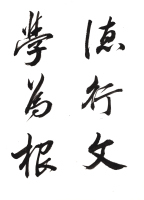 德行文
學為根